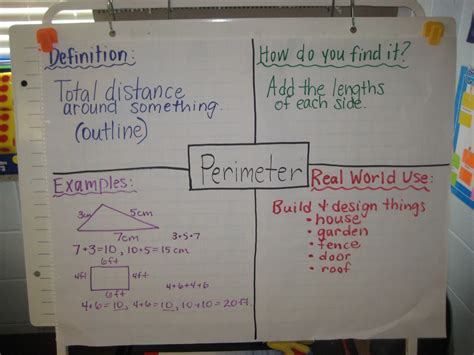 Definition:
Total distance
around something.
(outline)
How do you find it?
Add the lengths
of each side.
Perimeter
Examples:
3cm 5cm
7cm 3+5+7
7+3=10, 10+5=15cm
6ft
4ft 4ft 4+6+4+6
6ft
4+6=10, 4+6=10, 10+10=20ft.
Real World Use:
Build & design things
• house
• garden
• fence
• door
• roof